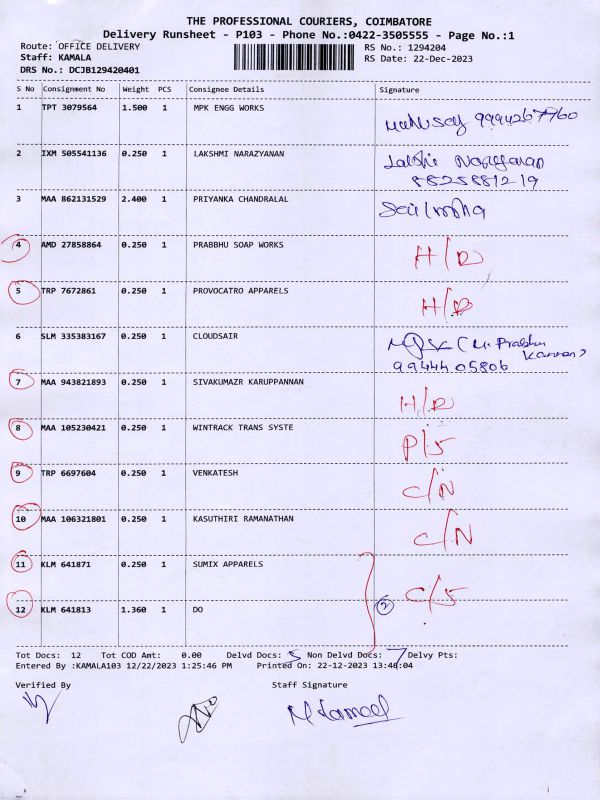 THE PROFESSIONAL COURIERS, COIMBATORE
Delivery Runsheet - P103 - Phone No.:0422-3505555 - Page No.:1
Route: OFFICE DELIVERY RS No.: 1294204
Staff: KAMALA RS Date: 22-Dec-2023
DRS No.: DCJB129420401
S No Consignment No Weight PCS Consignee Details Signature
1 TPT 3079564 1.500 1 MPK ENGG WORKS
9994267760
2 IXM 505541136 0.250 1 LAKSHMI NARAZYANAN
Narayanan
8825881219
3 MAA 862131529 2.400 1 PRIYANKA CHANDRALAL
4 AMD 27858864 0.250 1 PRABBHU SOAP WORKS H/D
5 TRP 7672861 0.250 1 PROVOCATRO APPARELS H/D
6 SLM 335383167 0.250 1 CLOUDSAIR (M. Prabhu
Kannan)
9944405806
7 MAA 943821893 0.250 1 SIVAKUMAZR KARUPPANNAN H/D
8 MAA 105230421 0.250 1 WINTRACK TRANS SYSTE P/S
9 TRP 6697604 0.250 1 VENKATESH C/N
10 MAA 106321801 0.250 1 KASUTHIRI RAMANATHAN C/N
11 KLM 641871 0.250 1 SUMIX APPARELS
12 KLM 641813 1.360 1 DO 2 C/S
Tot Docs: 12 Tot COD Amt: 0.00 Delvd Docs: 5 Non Delvd Docs: 7 Delvy Pts:
Entered By :KAMALA103 12/22/2023 1:25:46 PM Printed On: 22-12-2023 13:46:04
Verified By Staff Signature